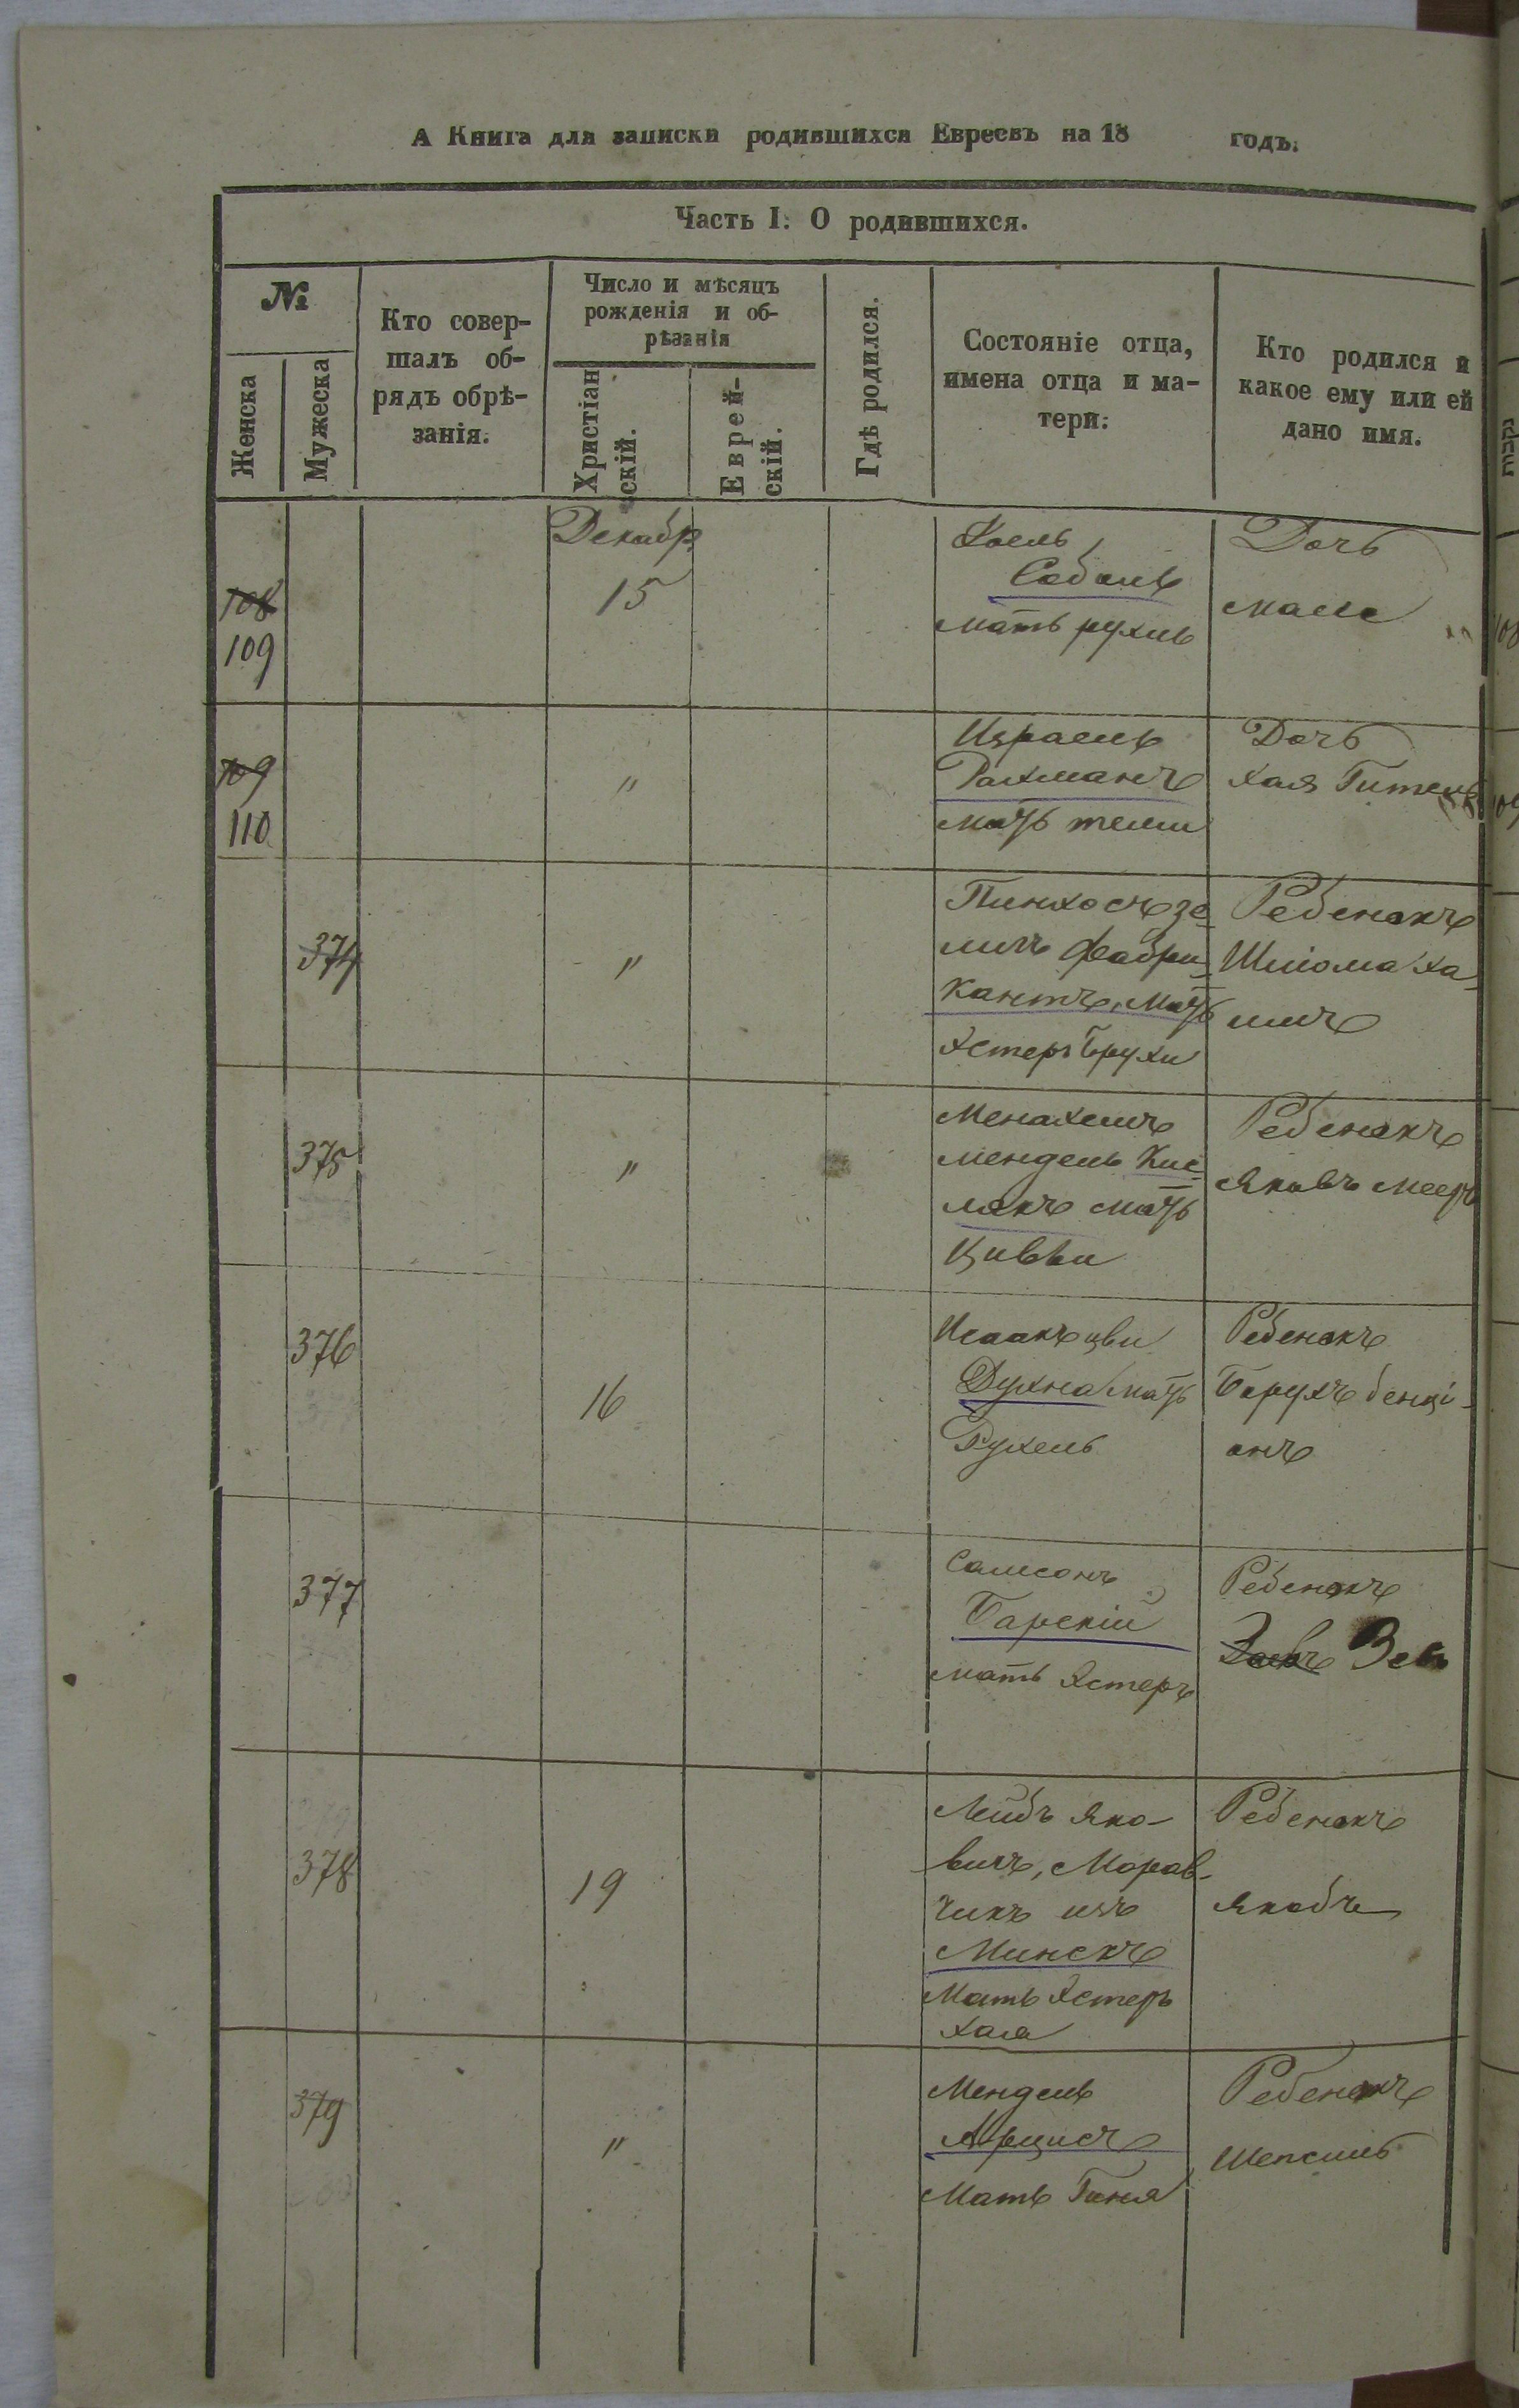 А Книга для записки родившихся Евреевъ на 18 годъ.
Часть I. О родившихся.
№
Женска
Мужеска
Кто совер-
шалъ об-
рядъ обрѣ-
занія.
Число и мѣсяцъ
рожденія и об-
рѣзанія
Христіан
скій.
Еврей-
скій.
Гдѣ родился.
Состояніе отца,
имена отца и ма-
тери:
Кто родился и
какое ему или ей
дано имя.
Декабр
108
109
15
Соболь
мать рухль
Дочь
109
110
"
Израель
Рахманъ
мать
Дочь
Хая Гитель
374
"
Пинхосъ зе
ликъ Фабри
кантъ, мать
Эстеръ Брухи
Ребенокъ
Шліома ха
имъ
375
"
Менахемъ
мендель Кис
лякъ мать
Цивьи
Ребенокъ
Яковъ мееръ
376
16
Исаакъ цви
Духна мать
Рухель
Ребенокъ
Борухъ бенці-
онъ
377
Самсонъ
Барскій
мать Эстеръ
Ребенокъ
378
19
Лейбъ Яко-
вичъ, Морав-
чикъ изъ
Минскъ
Мать Эстеръ
Хая
Ребенокъ
Якобъ
379
"
Мендель
мать Геня
Ребенокъ
Шепсиль